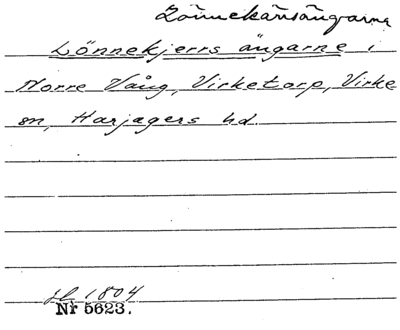 Lönnekärrsängarna
Lönnekjerrs ängarne i
Norre Vång, Virketorp, Virke
sn, Harjagers hd.
sk 1804
Nr 5623.